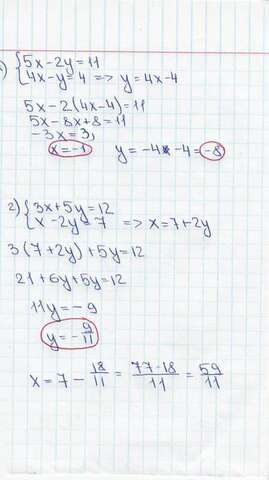 1) { 5x-2y=11
4x-y=4 => y=4x-4
5x-2(4x-4)=11
5x-8x+8=11
-3x=3,
x=-1 y=-4-4=-8
2) { 3x+5y=12
x-2y=7 => x=7+2y
3(7+2y)+5y=12
21+6y+5y=12
11y=-9
y=-9/11
x=7-18/11=77-18/11=59/11